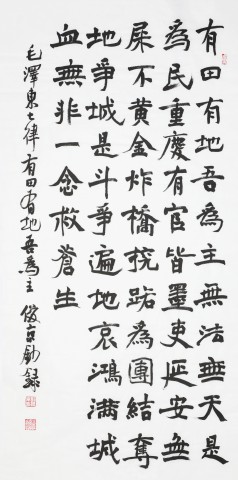 有田有地吾為主無法無天是
為民重慶有官皆墨吏延安無
屎不黃金炸橋挖路為團結奪
地爭城是斗爭遍地哀鴻滿城
血無非一念救蒼生
毛澤東七律有田有地吾為主 俊京鈔錄